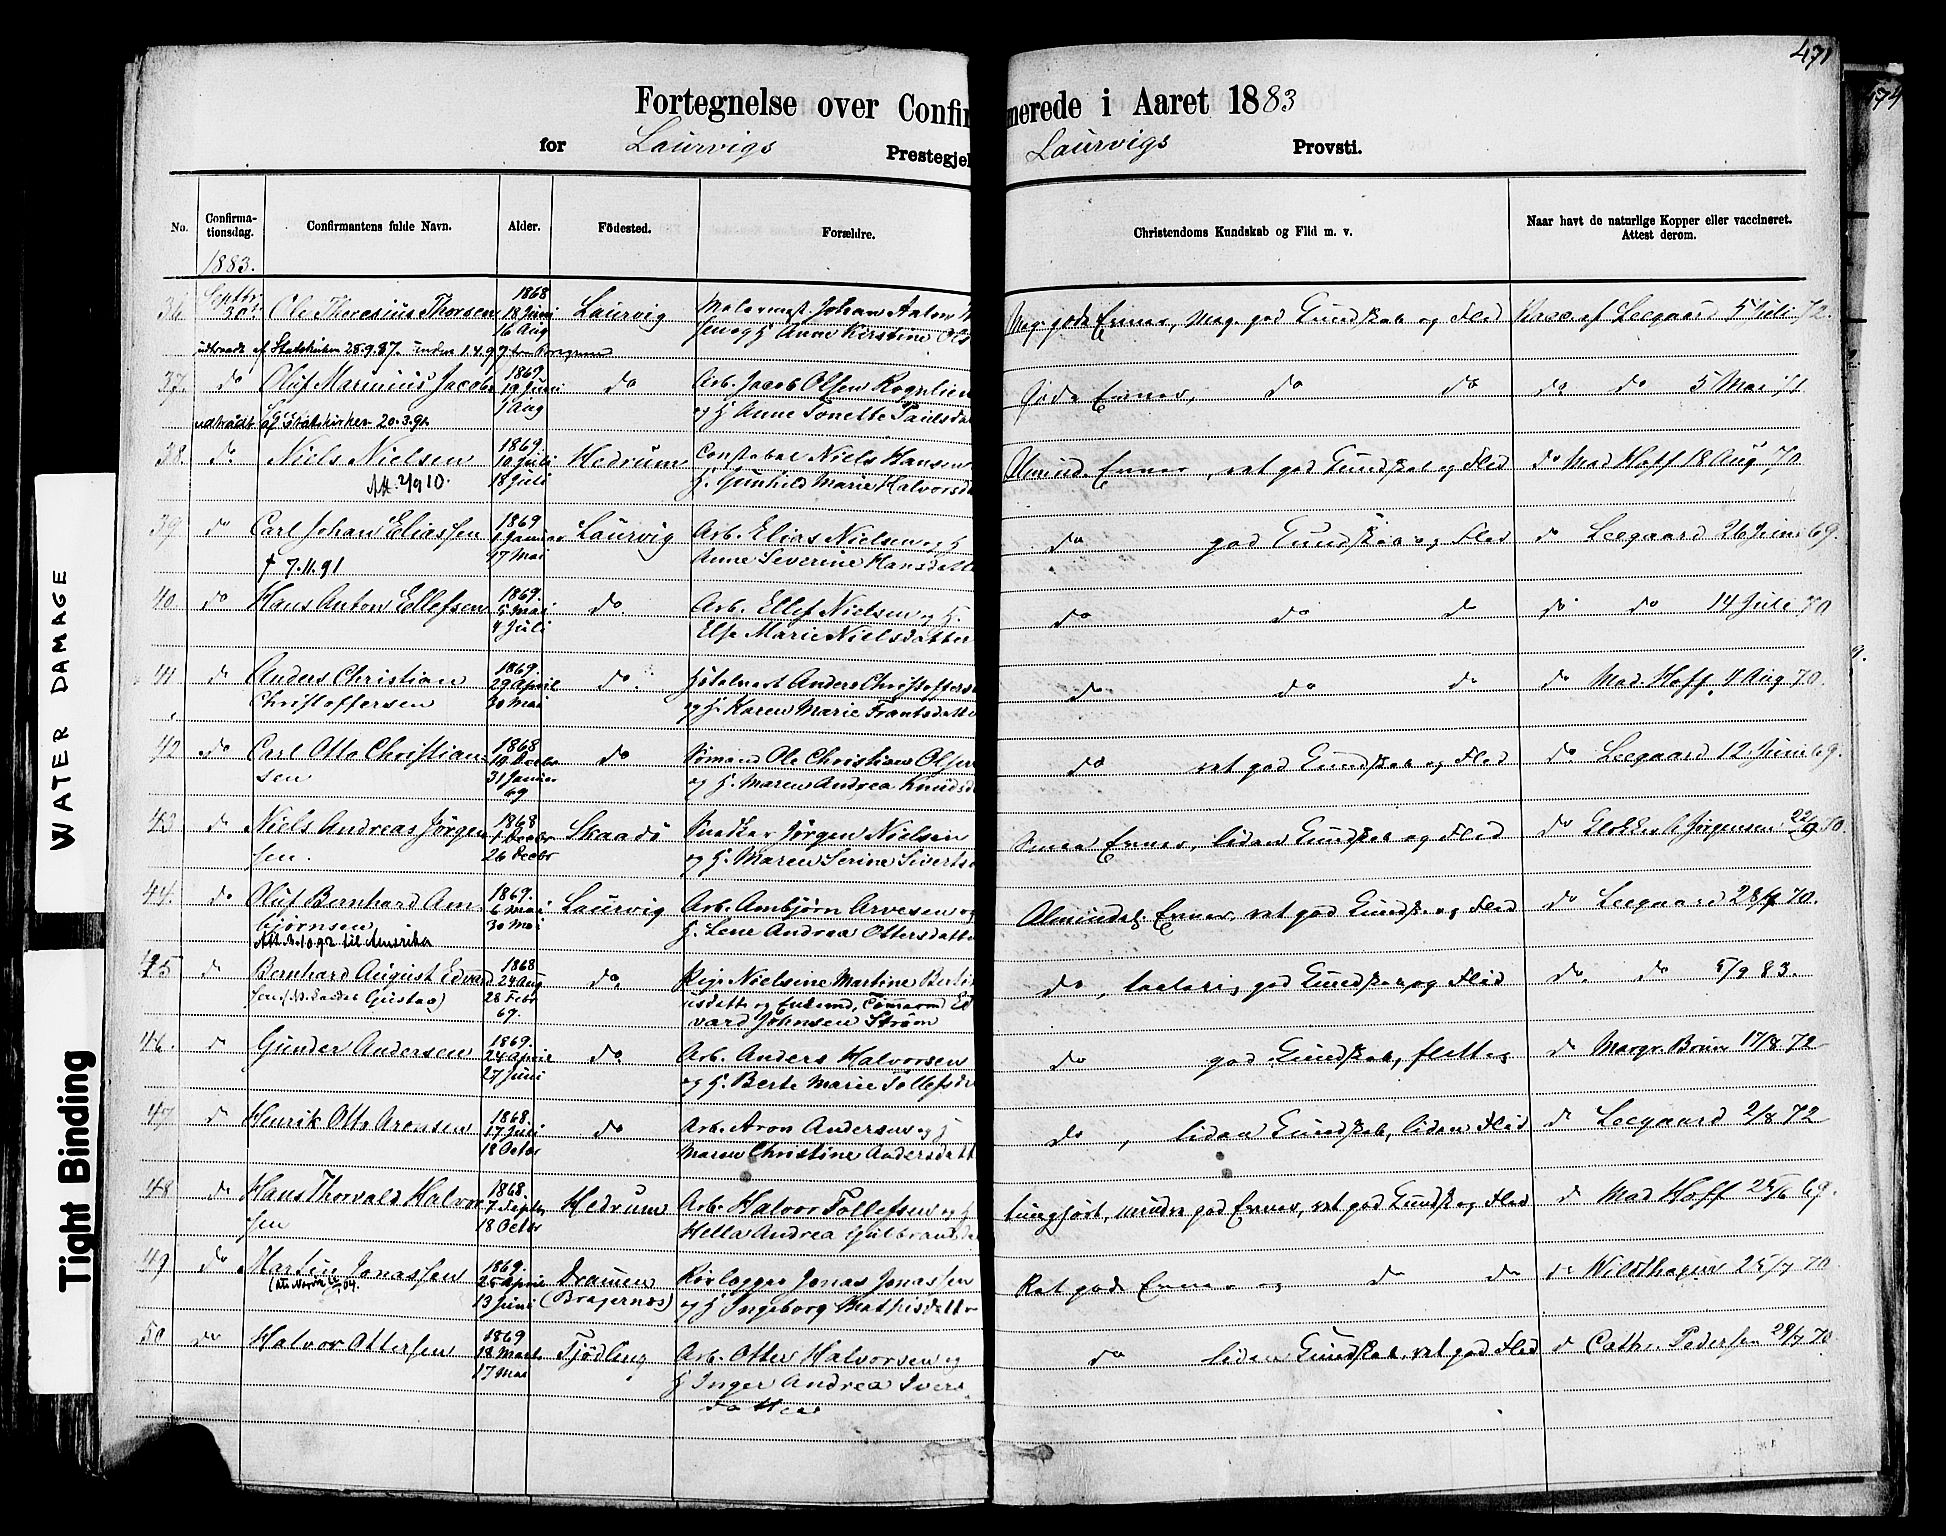 471
474
Fortegnelse over Confir merede i Aaret 1883
for Laurvigs Prestegjel Laurvigs Provsti.
No. Confirma-tionsdag. Confirmantens fulde Navn. Alder. Födested. Forældre. Christendoms Kundskab og Flid m. v. Naar havt de naturlige Kopper eller vaccineret. Attest derom.
1883.
36 Septbr. 30 Ole Theresius Thorsen 1868 18 Juni 16 Aug Laurvig Malermest. Johan Anton
og H. Anne Kirstine Ols Meg. gode Evner, Meg. god Kundskab og Flid Vacc. af Leegaard 5 Juli 72.
udtraadt af Statskirken 28.9.87.
37. do Oluf Marinius Jacobs 1869. 19 Juni 1 Aug do Arb. Jacob Olsen Rognlien
og H. Anne Tonette Paulsdat Gode Evner, do do do do 5 Mai 71
udtraadt af Statskirken 20.3.91.
38. do Niels Nielsen 1869. 10 Juli 18 Juli Hedrum Constabel Niels Hansen
H. Gunhild Marie Halvorsda Almind. Evner, ret god Kundskab og Flid do Mad Hoff 18 Aug 70
Att. 2/9 10.
39. do Carl Johan Eliassen 1869 1 Januar 17 Mai Laurvig Arb. Elias Nielsen og H
Anne Severine Hansdatte do god Kundskab og Flid do Leegaard 26 Juni 69.
† 7.11.91
40 do Hans Anton Ellefsen 1869. 5 Mai 4 Juli do Arb. Ellef Nielsen og H.
Else Marie Nielsdatter do do do do do 14 Juli 70
41 do Anders Christian 1869. 29 April 30 Mai do. Anders Christoffers
Christoffersen og H. Karen Marie Frantsdatte do do do do Mad. Hoff. 4 Aug 70.
42 do Carl Otto Christian 1868 10 Decbr 31 Januar 69 do Sömand Ole Christian Olsen
sen og H. Maren Andrea Knudsd do ret god Kundskab og Flid do Leegaard 12 Juni 69.
43 do Niels Andreas Jörgen 1868 1 Decbr 26 Decbr Skaadö Snedker Jörgen Nielsen
sen. og H. Maren Serine Sivertsd Smaa Evner, liden Kundskab og Flid do Jörgensen 22/9 50.
44. do Oluf Bernhard Am 1869. 6 Mai 30 Mai Laurvig Arb. Ambjörn Arvesen og
björnsen H. Lene Andrea Ottersdatte Almindel. Evner, ret god Kundsk. og Flid do Leegaard 28/7 70.
Att. 3.10.92 til Amerika
45 do Bernhard August Edvard 1868 24 Aug 28 Febr 69. do. Pige Nielsine Martine Berti
Gustav) usdatt. og Enkemd. Tømmermd Ed
vard Johnsen Ström do, god Kundskab og Flid do. do 5/9 83.
46. do Gunder Andersen 1869. 24 April 27 Juni do Arb. Anders Halvorsen
og H. Berte Marie Tollefsda do god Kundskab, flittig do Margr. Bruun 17/8 72
47 do Henrik Otto Aronsen 1868. 17 Juli 18 Octbr do Arb. Aron Andersen og H
Maren Christine Andersdatt do, liden Kundskab, liden Flid do Leegaard 2/8 72
48 do Hans Thorvald Halvor 1868. 7 Septbr 18 Octbr Hedrum Arb. Halvor Tollefsen og H
sen Hella Andrea Gulbrandsda tunghört, mindre god Evner, ret god Kundsk. og Flid do Mad Hoff 25/6 69.
49 do Martin Jonassen 1869. 25 April 13 Juni Dramen (Bragernæs) Rörlægger Jonas Jonassen
og H Ingeborg Mathisdatte Ret gode Evner og do do do Wildthagen 25/7 70.
50 do Halvor Ottersen 1869 18 Marts 17 Mai Tjödling Arb. Otter Halvorsen og
H Inger Andrea Ivers
datter do liden Kundskab, ret god Flid do Cathr. Pedersen 29/7 70.
WATER DAMAGE
Tight Binding